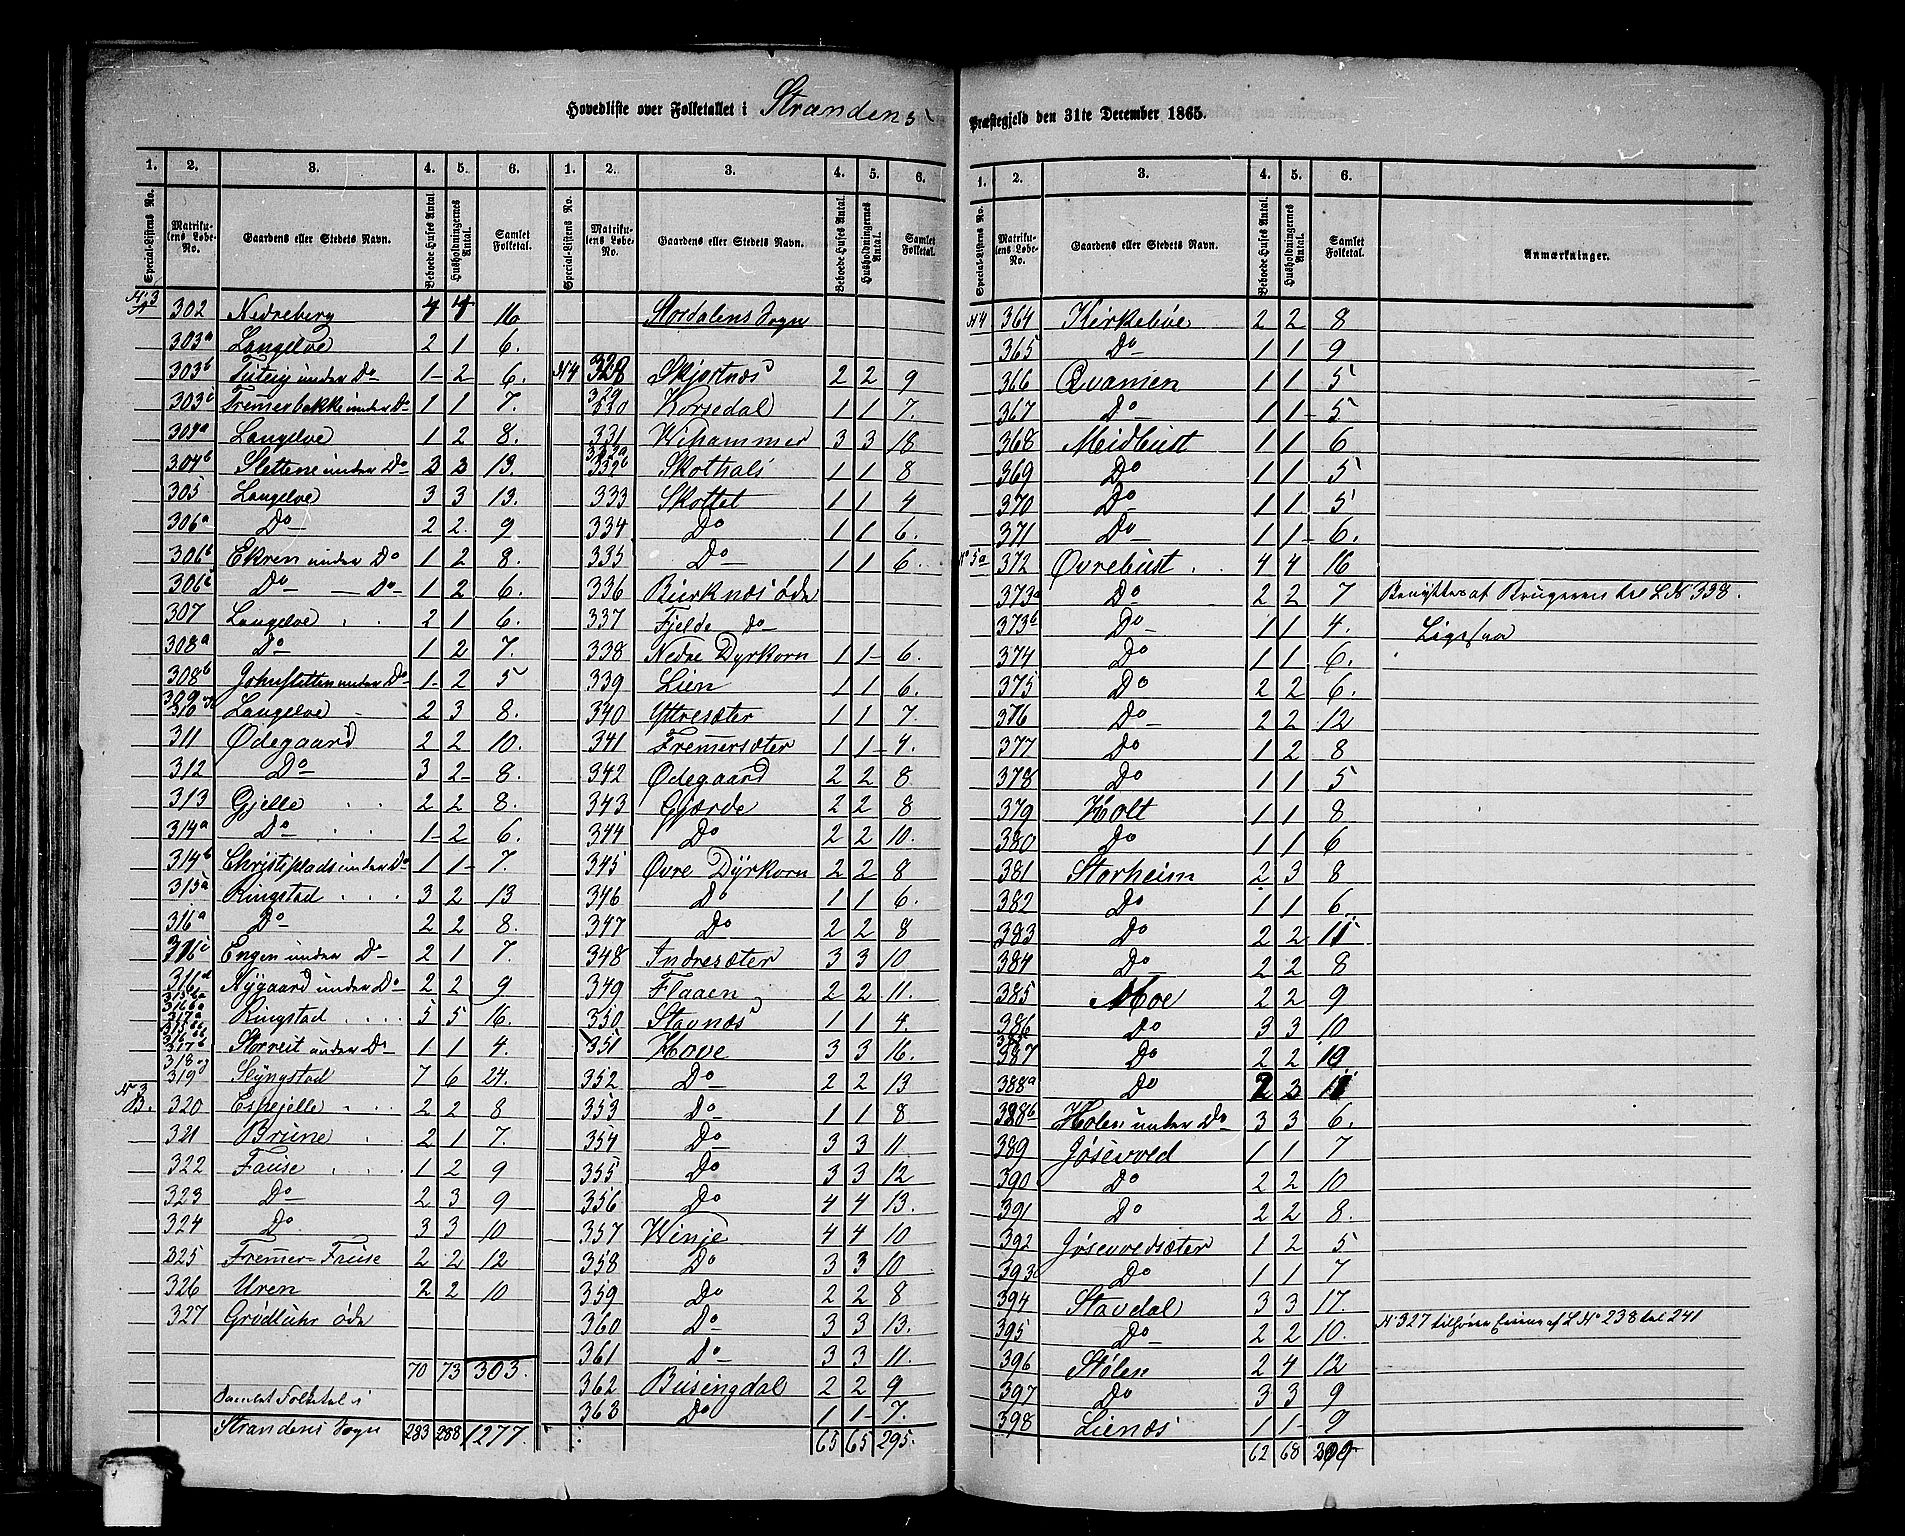 Hovedliste over Folketallet i Strandens
Præstegjeld den 31te December 1865.
1. 2. 3. 4. 5. 6.
Special-Listens No. Matrikulens Løbe-No. Gaardens eller Stedets Navn. Beboede Huses Antal Husholdningernes Antal. Samlet Folketal.
No 3 A 302 Nedreberg 4 4 16
303a Langelve 2 1 6.
303b Tuteig under Do 1 2 6.
303c Fremerbakke under Do 1 1 7.
304a Langelve 1 2 8.
304b Slettene under Do 3 3 13.
305 Langelve 3 3 13.
306a Do 2 2. 9
306b Ekren under Do 1 2 8.
306c Do — Do 1 2 6.
307 Langelve 2 1 6.
308a Do 1 2 7.
308b Johnsletten under Do 1 2 5
309 og 310 Langelve 2 3 8.
311 Ødegaard 2 2 10.
312 Do 3 2 8.
313 Gjelle 2 2 8.
314a Do 1 2 6.
314b Christiplads under Do 1 1 7.
315a Ringstad 3 2 13
316a Do 2 2 8.
316c Engen under Do 2 1 7.
316d Nygaard under Do 2 2 9
Ringstad 5 5 16.
Storreit under Do 1 1 4.
318 og 319 Slyngstad 7 6 24.
No 3 B. 320 Espejelle 2 2 8
321 Brune 2 1 7.
322 Fause 1 2 9
323 Do 2 3 9
324 Do 3 3 10
325 Fremer-Fause 2 2 12
326 Uren 2 2 10
327 Grødluhr øde
70 73 303.
Samlet Folketal i
Strandens Sogn 283 288 1277.
1. 2. 3. 4. 5. 6.
Special-Listens No. Matrikulens Løbe-No. Gaardens eller Stedets Navn. Beboede Huses Antal. Husholdningernes Antal. Samlet Folketal.
Stordalens Sogn
No 4 328 Skjortnæs 2 2 9
329 330 Korsedal 1 1 7.
331 Wihammer 3 3 18
332a 332b Skothals 1 1 8
333 Skottet 1 1 4
334 Do 1 1 6.
335 Do 1 1 6.
336 Burknæs øde
337 Fjelde Do
338 Nedre Dyrkorn 1 1 6.
339 Lien 1 1 6.
340 Yttresæter 1 1 7.
341 Fremersæter 1 1 4.
342 Ødegaard 2 2 8
343 Gjærde 2 2 8
344 Do 2 2 10.
345 Øvre Dyrkorn 2 2 8
346 Do 1 1 6.
347 Do 2 2 8
348 Indresæter 3 3 10
349 Flaaen 2 2 11.
350 Stavnæs 1 1 4.
351 Hove 3 3 16.
352 Do 2 2 13
353 Do 1 1 8
354 Do 3 3 11.
355 Do 3 3 12
356 Do 4 4 13.
357 Winje 4 4 10
358 Do 3 3 10
359 Do 2 2 8
360 Do 3 3 13.
361 Do 3 3 11.
362 Busingdal 2 2 9
363 Do 1 1 7.
65 65 295.
1. 2. 3. 4. 5. 6.
Special-Listens No. Matrikulens Løbe-No. Gaardens eller Stedets Navn. Beboede Huses Antal. Husholdningernes Antal. Samlet Folketal. Anmærkninger.
No 4 364 Kirkebøe 2 2 8
365 Do 1 1 9
366 Qvamen 1 1 5
367 Do 1 1 5
368 Meidbust 1 1 6
369 Do 1 1 5
370 Do 1 1 5
371 Do 1 1 6.
No 5a 372 Øvrebust 4 4 16
373a Do 2 2 7 Benyttes af Brugeren til L No 338.
373b Do 1 1 4. Ligesaa
374 Do 1 1 6.
375 Do 2 2 6.
376 Do 2 2 12
377 Do 1 2 8
378 Do 1 1 5
379 Holt 1 1 8
380 Do 1 1 6
381 Storheim 2 3 8
382 Do 1 1 6
383 Do 2 2 11
384 Do 2 2 8
385 Moe 2 2 9
386 Do 3 3 10
387 Do 2 2 10
388a Do 2 3 11
388b Holen under Do 3 3 6.
389 Jøsevold 1 1 7
390 Do 2 2 10
391 Do 2 2 8.
392 Jøsevoldsæter 1 2 5
393 Do 1 1 7
394 Stavdal 3 3 17.
395 Do 2 2 10. No 327 tilhører Eierne af L No 238 til 241
396 Stølen 2 4 12
397 Do 3 3 9
398 Lienæs 1 1 9
62 68 299